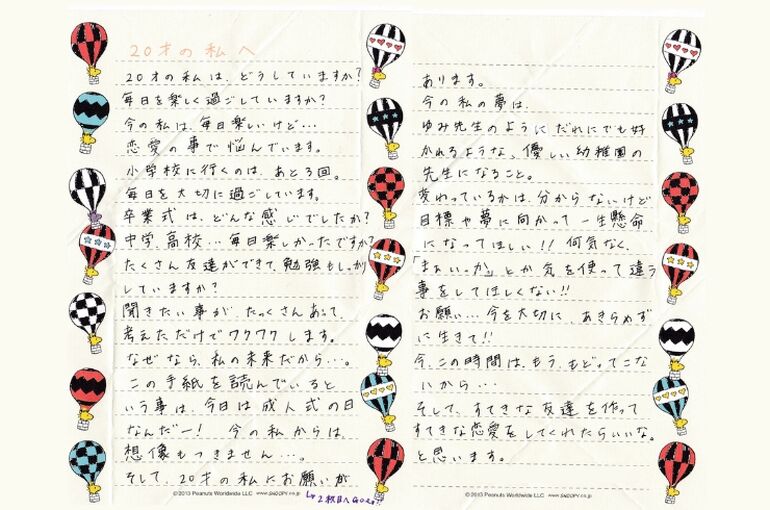 20才の私へ
20才の私は、どうしていますか?
毎日を楽しく過ごしていますか?
今の私は、毎日楽しいけど…
恋愛の事で悩んでいます。
小学校に行くのは、あと3回。
毎日を大切に過ごしています。
卒業式は、どんな感じでしたか?
中学、高校…毎日楽しかったですか?
たくさん友達ができて、勉強もしっかり
していますか?
聞きたい事が、たっくさんあって、
考えただけでワクワクします。
なぜなら、私の未来だから…。
この手紙を読んでいると
いう事は、今日は成人式の日
なんだー! 今の私からは、
想像もつきません…。
そして、20才の私にお願いが
↳2枚目へGo!!
©2013 Peanuts Worldwide LLC www.SNOOPY.co.jp
あります。
今の私の夢は、
ゆみ先生のようにだれにでも好
かれるような、優しい幼稚園の
先生になること。
変わっているかは、分からないけど
目標や夢に向かって一生懸命
になってほしい!! 何気なく、
「まぁいっか」とか気を使って違う
事をしてほしくない!!
お願い…今を大切に、あきらめず
に生きて!!
今、この時間は、もう、もどってこな
いから…
そして、すてきな友達を作って
すてきな恋愛をしてくれたらいいな。
と思います。
©2013 Peanuts Worldwide LLC www.SNOOPY.co.jp